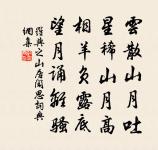 雲散山月吐
星稀山月高
相羊久露底
望月誦離騷
羅與之山居閒思詞典
網集